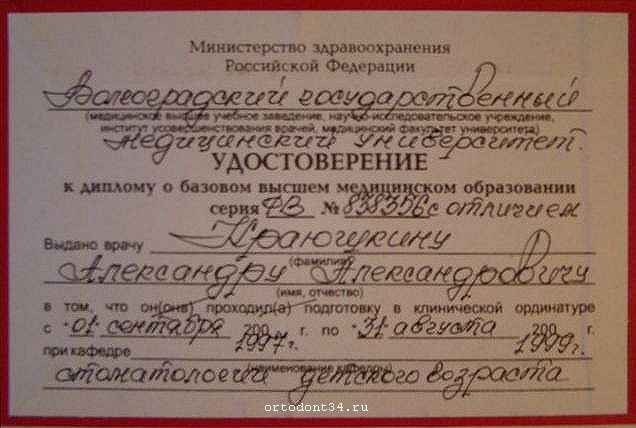 Министерство здравоохранения
Российской Федерации
Волгоградский государственный
(медицинское высшее учебное заведение, научно-исследовательское учреждение,
институт усовершенствования врачей, медицинский факультет университета)
медицинский университет.
УДОСТОВЕРЕНИЕ
к диплому о базовом высшем медицинском образовании
серия ФВ № 838356 с отличием
Выдано врачу Краюшкину
(фамилия)
Александру Александровичу
(имя, отчество)
в том, что он(она) проходил(а) подготовку в клинической ординатуре
с "01" сентября 200 г. по "31" августа 200 г.
1997 г. 1999 г.
при кафедре
(наименование кафедры)
стоматологии детского возраста
ortodont34.ru